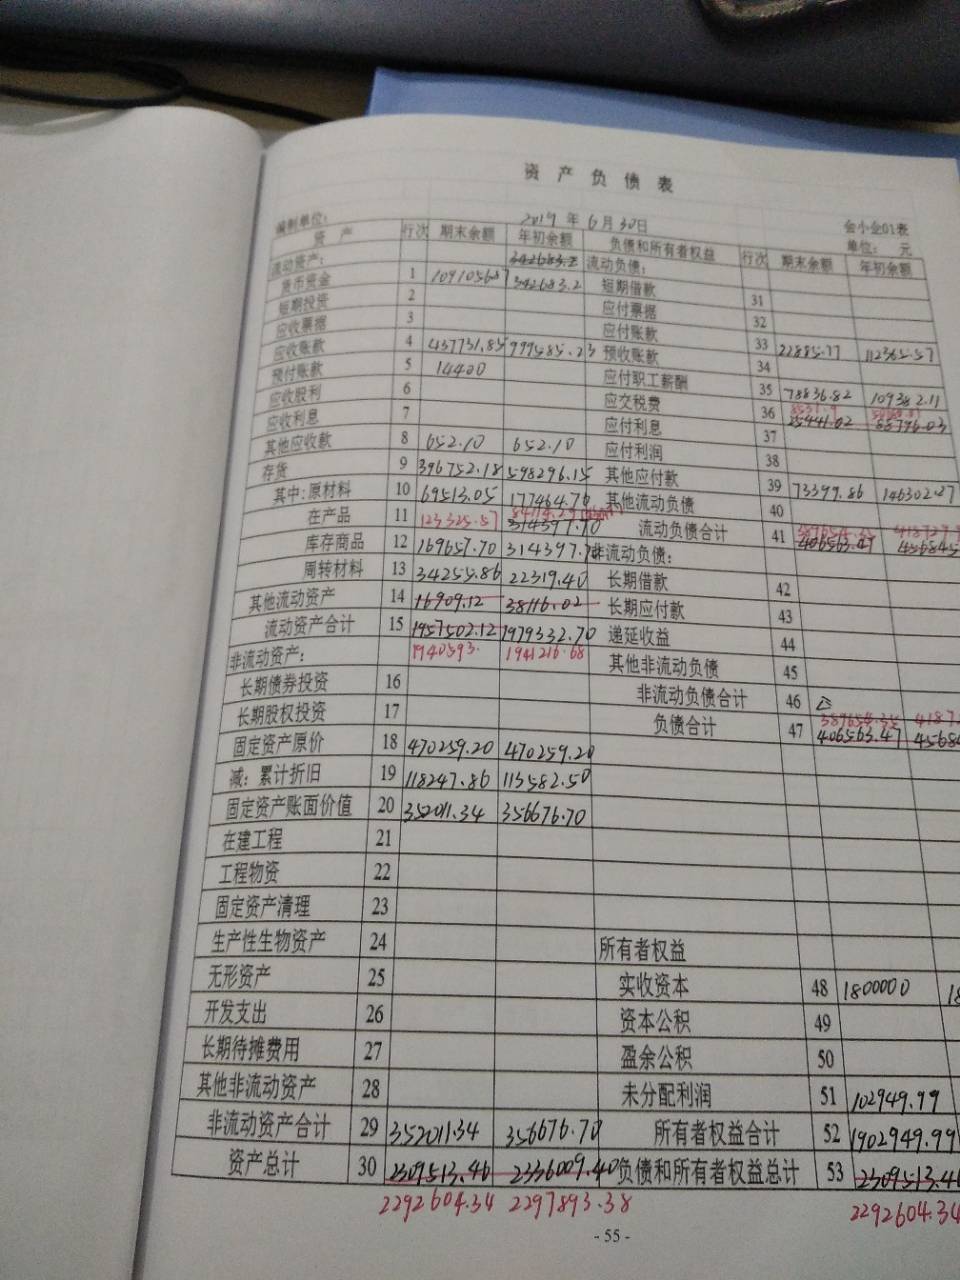 资产负债表
编制单位： 2019年6月30日 会小企01表
单位：元
资产 行次 期末余额 年初余额 负债和所有者权益 行次 期末余额 年初余额
流动资产： 342683.2 流动负债：
货币资金 1 342683.2 短期借款 31
短期投资 2 应付票据 32
应收票据 3 应付账款 33 22885.77 112365.57
应收账款 4 437731.85 999585.23 预收账款 34
预付账款 5 14400 应付职工薪酬 35 78836.82 109382.11
应收股利 6 应交税费 36 25441.02 88796.03
应收利息 7 应付利息 37
其他应收款 8 652.10 652.10 应付利润 38
存货 9 396752.18 598296.15 其他应付款 39 73399.86 146302.27
其中：原材料 10 69513.05 177464.76 其他流动负债 40
在产品 11 123325.57 314397.70 流动负债合计 41 389654.35 406563.47
库存商品 12 169657.70 314397.70 非流动负债：
周转材料 13 34255.86 22319.40 长期借款 42
其他流动资产 14 16909.12 38116.02 长期应付款 43
流动资产合计 15 1957502.12 1979332.70 递延收益 44
1940593. 1941216.68
非流动资产： 其他非流动负债 45
长期债券投资 16 非流动负债合计 46
长期股权投资 17 负债合计 47 389654.35 406563.47
固定资产原价 18 470259.20 470259.20
减：累计折旧 19 118247.86 113582.50
固定资产账面价值 20 352011.34 356676.70
在建工程 21
工程物资 22
固定资产清理 23
生产性生物资产 24 所有者权益
无形资产 25 实收资本 48 1800000
开发支出 26 资本公积 49
长期待摊费用 27 盈余公积 50
其他非流动资产 28 未分配利润 51 102949.99
非流动资产合计 29 352011.34 356676.70 所有者权益合计 52 1902949.99
资产总计 30 2309513.46 2336009.40 负债和所有者权益总计 53 2309513.46
2292604.34 2297893.38 2292604.34
- 55 -